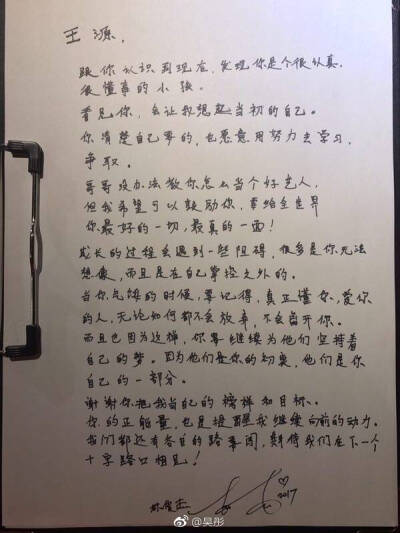 王源,
跟你认识到现在,发现你是个很认真,
很懂事的小孩。
看见你,会让我想起当初的自己。
你清楚自己要的,也愿意用努力去学习,
争取。
哥哥没办法教你怎么当个好艺人,
但我希望可以鼓励你,带给全世界
你最好的一切,最真的一面!
成长的过程会遇到一些阻碍,很多是你无法
想像,而且是在自己掌控之外的。
当你气馁的时候,要记得,真正懂你,爱你
的人,无论如何都不会放弃,不会离开你。
而且也因为这样,你要继续为他们坚持着
自己的梦。因为他们是你的初衷,他们是你
自己的一部分。
谢谢你把我当自己的榜样和目标。
你的正能量,也是提醒我继续向前的动力。
我们都还有各自的路要闯,期待我们在下一个
十字路口相见!
林俊杰
2017
@吴彤